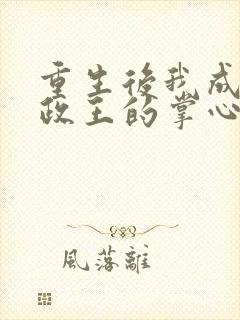 重生後我成
政王的掌心
風落離